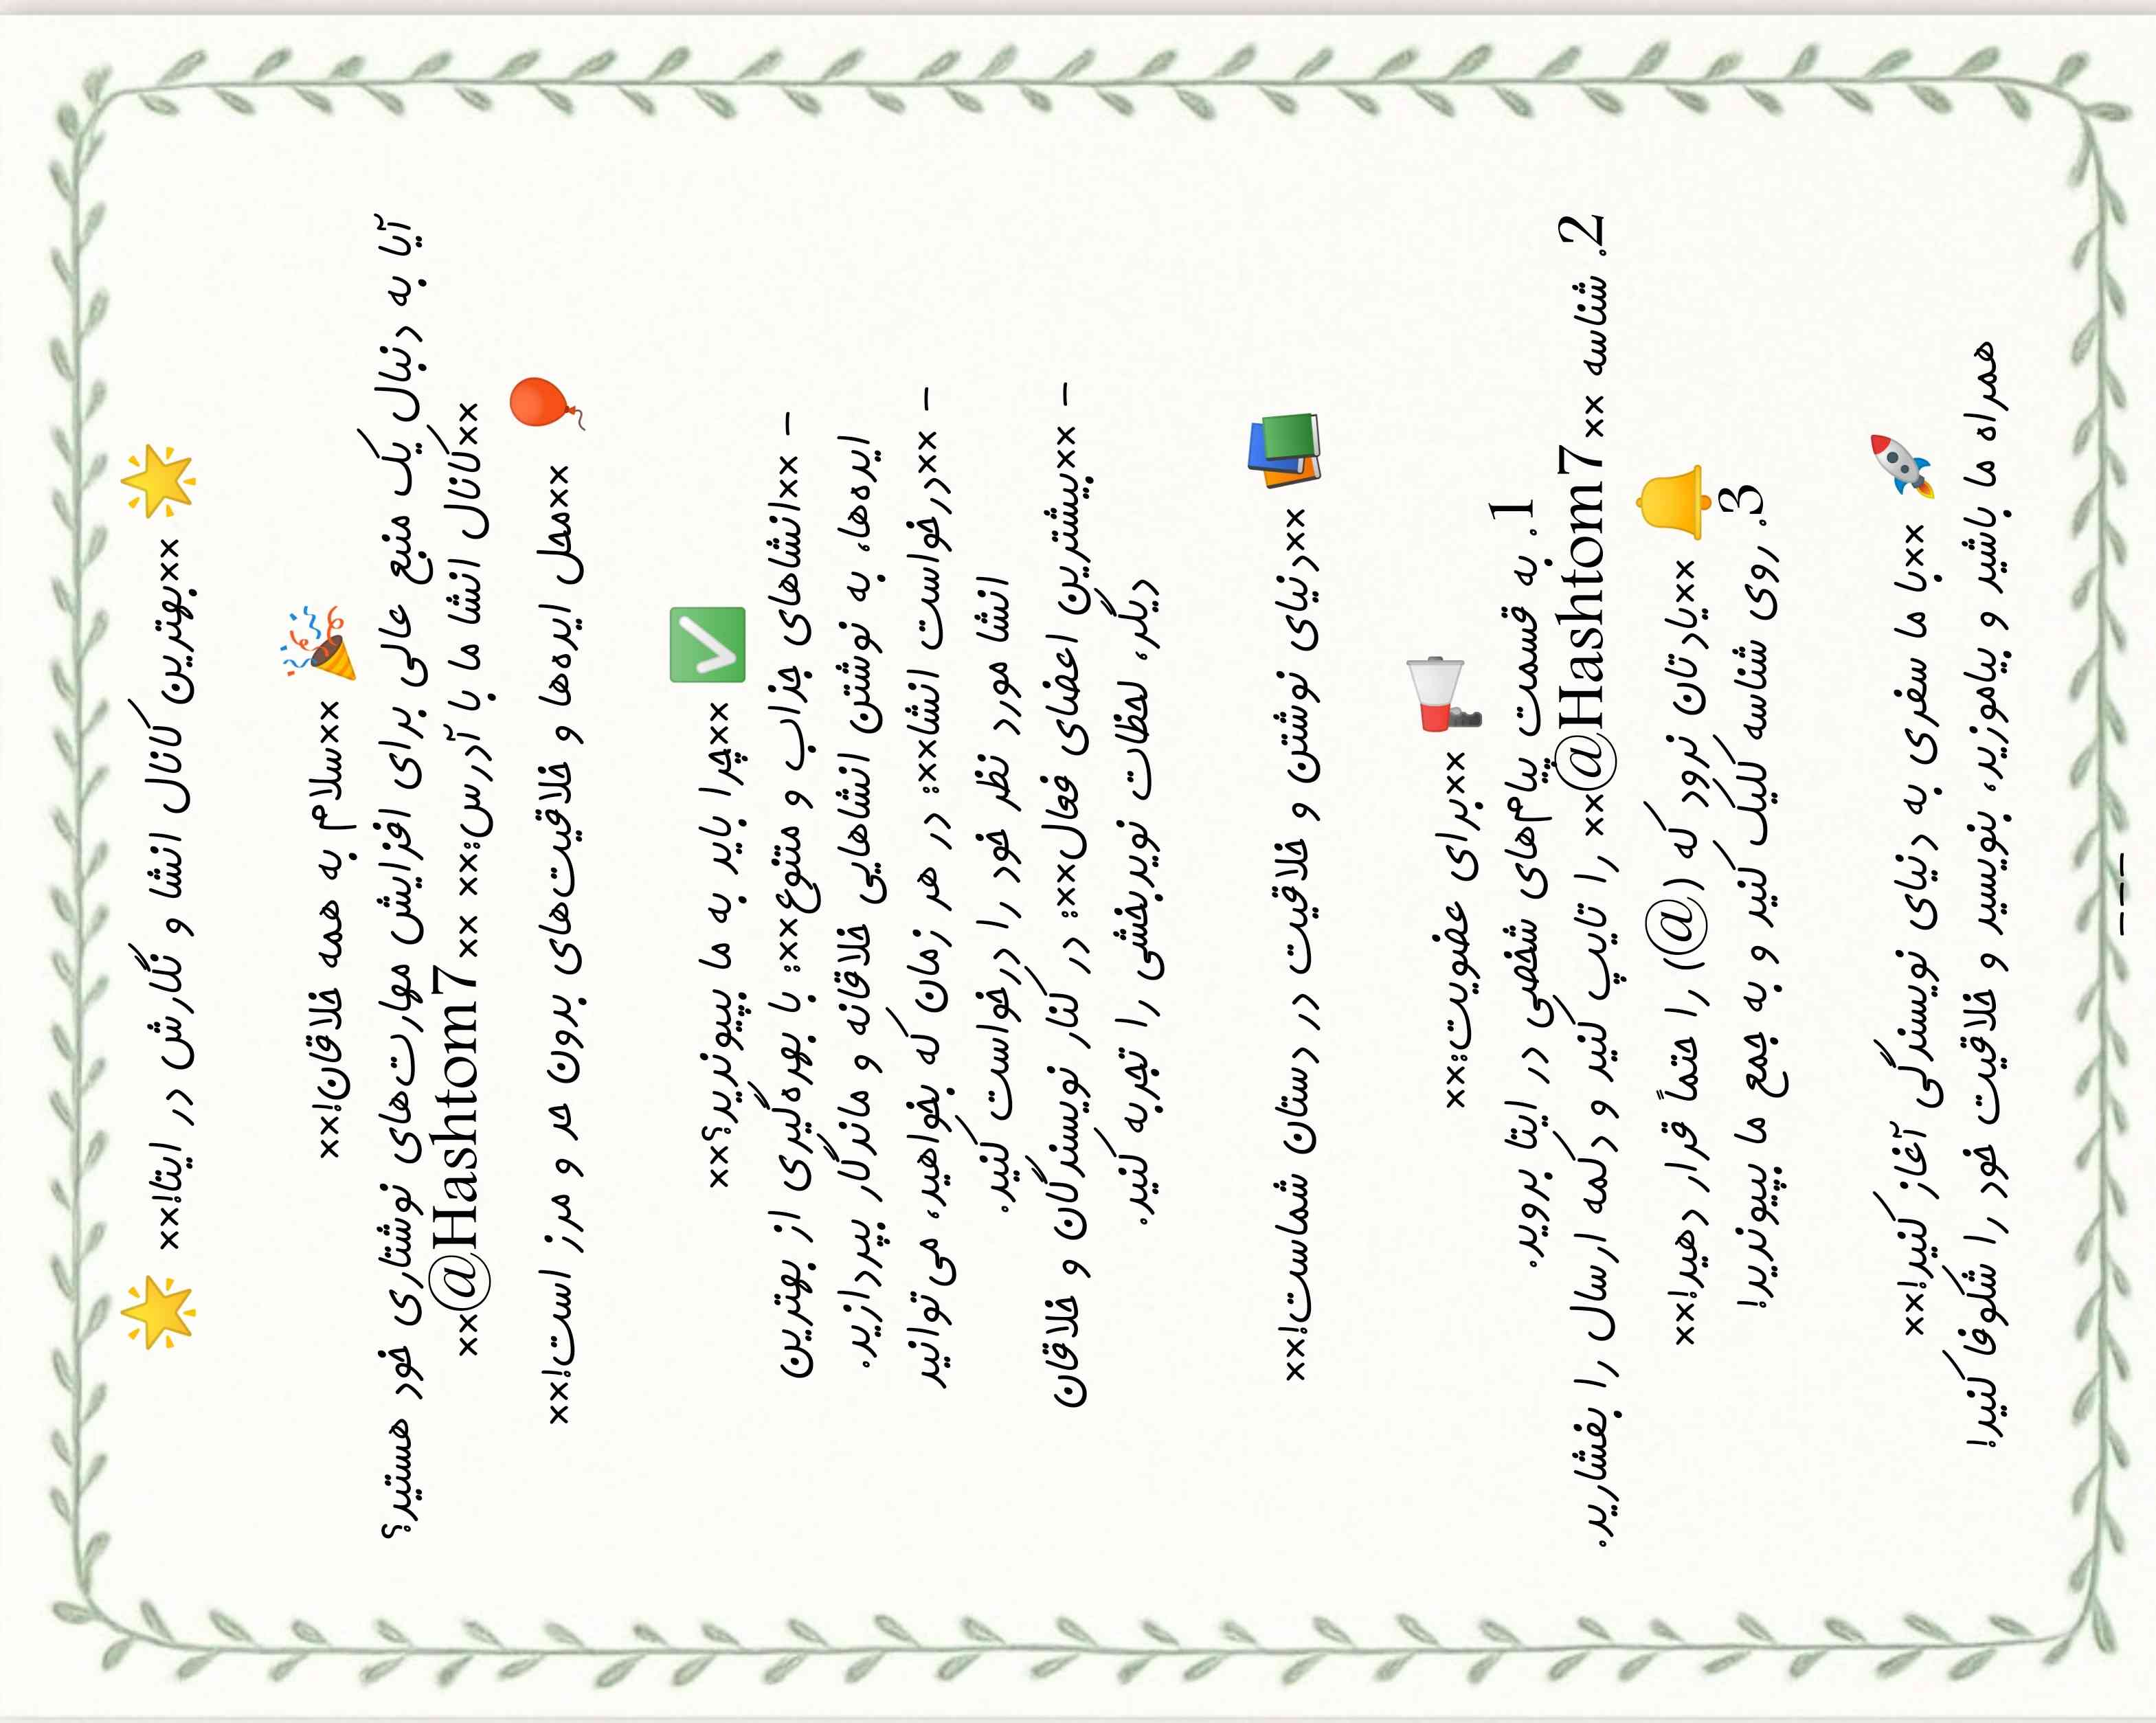 🌟 **بهترین کانال انشا و نگارش در ایتا!** 🌟
🎉 **سلام به همه خلاقان!**
آیا به دنبال یک منبع عالی برای افزایش مهارت‌های نوشتاری خود هستید؟
**کانال انشا ما با آدرس:** **@Hashtom7**
🎈 **محل ایده‌ها و خلاقیت‌های بدون حد و مرز است!**
✅ **چرا باید به ما بپیوندید؟**
- **انشاهای جذاب و متنوع**: با بهره‌گیری از بهترین
ایده‌ها، به نوشتن انشاهایی خلاقانه و ماندگار بپردازید.
- **درخواست انشا**: در هر زمان که بخواهید، می‌توانید
انشا مورد نظر خود را درخواست کنید.
- **بیشترین اعضای فعال**: در کنار نویسندگان و خلاقان
دیگر، لحظات نویدبخشی را تجربه کنید.
📚 **دنیای نوشتن و خلاقیت در دستان شماست!**
📢 **برای عضویت:**
1. به قسمت پیام‌های شخصی در ایتا بروید.
2. شناسه **@Hashtom7** را تایپ کنید و دکمه ارسال را بفشارید.
🔔 **یادتان نرود که (@) را حتماً قرار دهید!**
3. روی شناسه کلیک کنید و به جمع ما بپیوندید!
🚀 **با ما سفری به دنیای نویسندگی آغاز کنید!**
همراه ما باشید و بیاموزید، بنویسید و خلاقیت خود را شکوفا کنید!
---